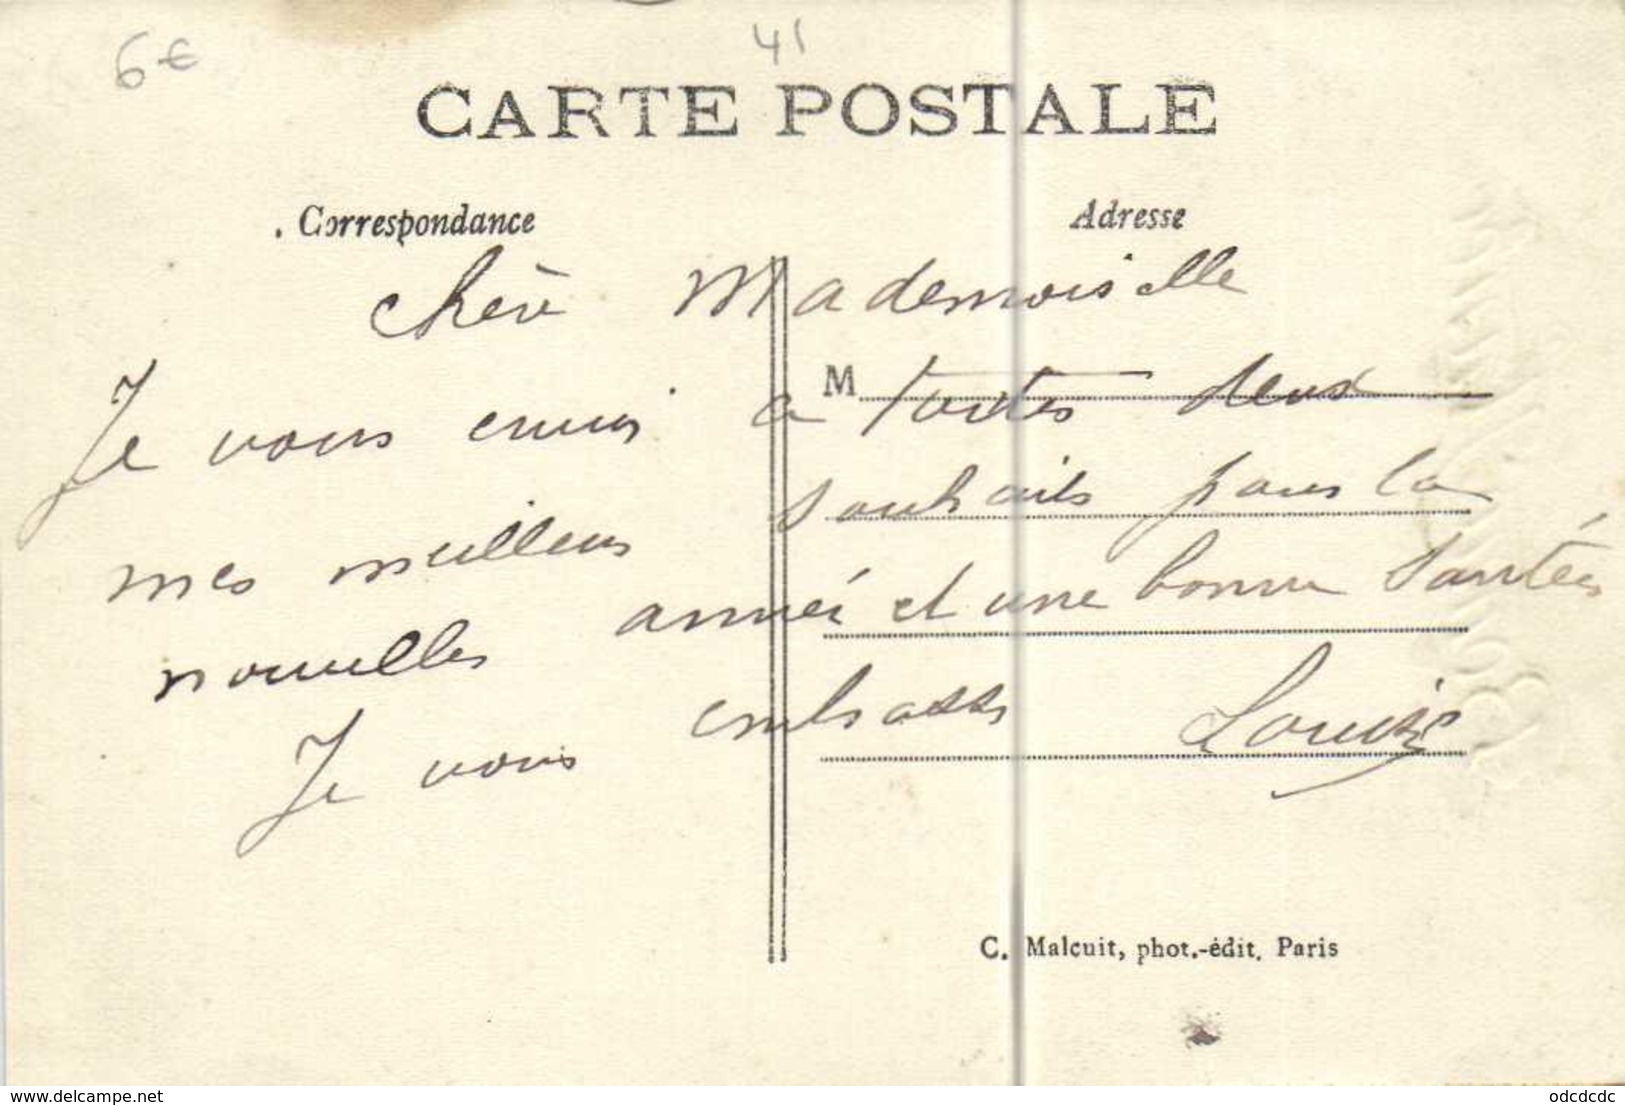 6€
41
CARTE POSTALE
Correspondance
Adresse
chère Mademoiselle
M
Je vous envui a toutes deux
mes meilleurs souhaits pour la
nouvelles anneé et une bonne santées
Je vous embrasse Louise
C. Malcuit, phot.-édit. Paris
www.delcampe.net
odcdcdc